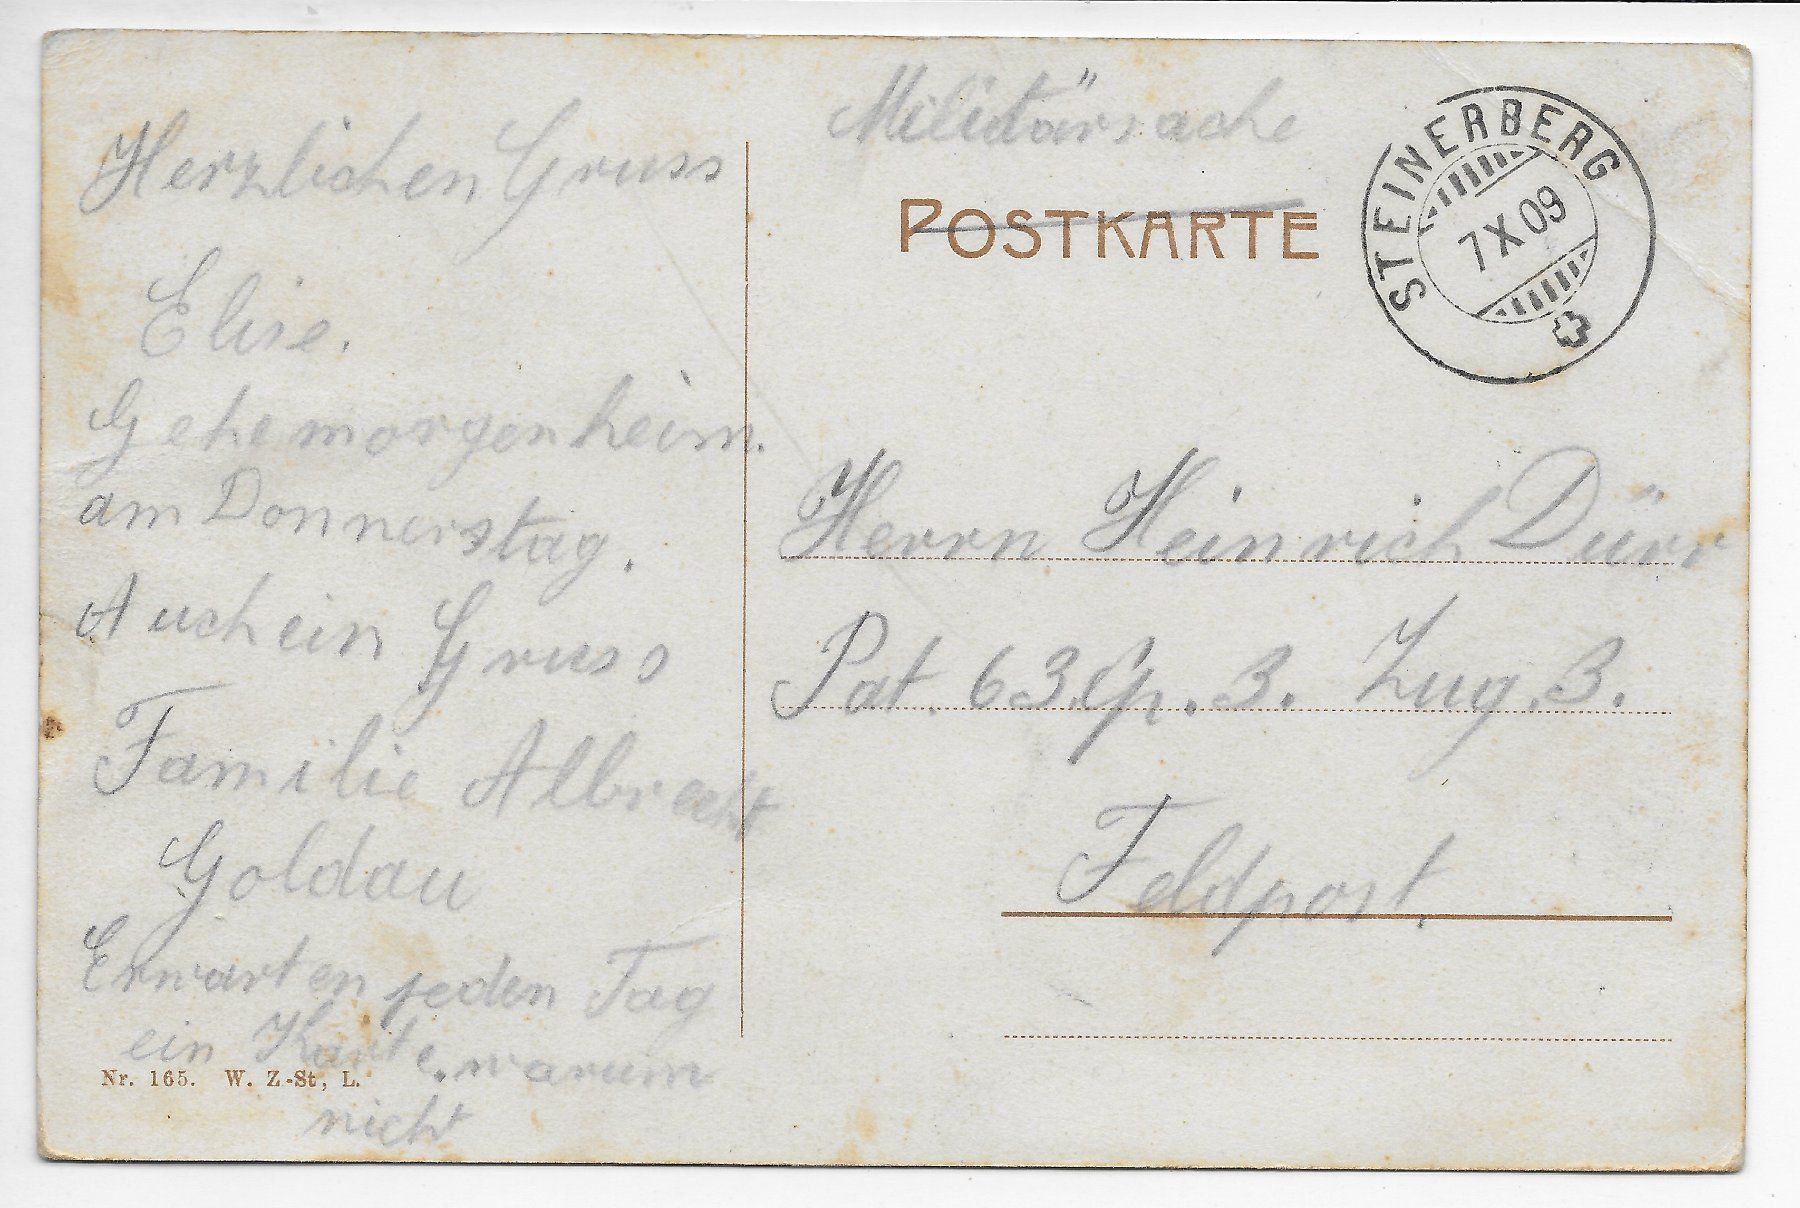 Herzlichen Gruss
Elise.
Gehe morgen heim.
am Donnerstag.
Auch ein Gruss
Familie Albrecht
Goldau
Erwarten jeden Tag
ein Karte. warum
nicht
Nr. 165. W. Z-St, L.
Militärsache
POSTKARTE
STEINERBERG
7 X 09
Herrn Heinrich Dürr
Pat. 63. Cp. 3. Zug. 3.
Feldpost.